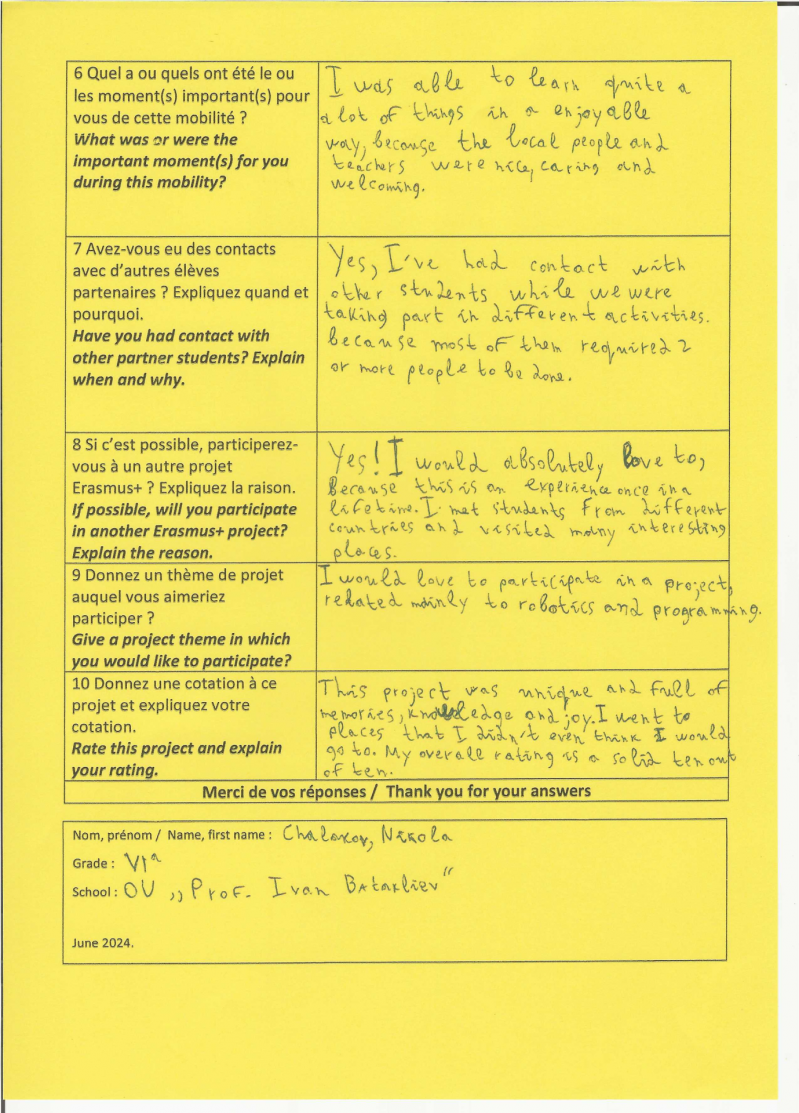 6 Quel a ou quels ont été le ou
les moment(s) important(s) pour
vous de cette mobilité ?
What was or were the
important moment(s) for you
during this mobility?
I was able to learn quite a
a lot of things in a enjoyable
way, because the local people and
teachers were nice, caring and
welcoming.
7 Avez-vous eu des contacts
avec d'autres élèves
partenaires ? Expliquez quand et
pourquoi.
Have you had contact with
other partner students? Explain
when and why.
Yes, I've had contact with
other students while we were
taking part in different activities.
because most of them required 2
or more people to be done.
8 Si c'est possible, participerez-
vous à un autre projet
Erasmus+ ? Expliquez la raison.
If possible, will you participate
in another Erasmus+ project?
Explain the reason.
Yes! I would absolutely love to,
because this is an experience once in a
lifetime. I met students from different
countries and visited many interesting
places.
9 Donnez un thème de projet
auquel vous aimeriez
participer ?
Give a project theme in which
you would like to participate?
I would love to participate in a project,
related mainly to robotics and programming.
10 Donnez une cotation à ce
projet et expliquez votre
cotation.
Rate this project and explain
your rating.
This project was unique and full of
memories, knowledge and joy. I went to
places that I didn't even think I would
go to. My overall rating is a solid ten out
of ten.
Merci de vos réponses / Thank you for your answers
Nom, prénom / Name, first name : Chalakov, Nikola
Grade : VIª
School : OU ,,Prof. Ivan Batakliev"
June 2024.